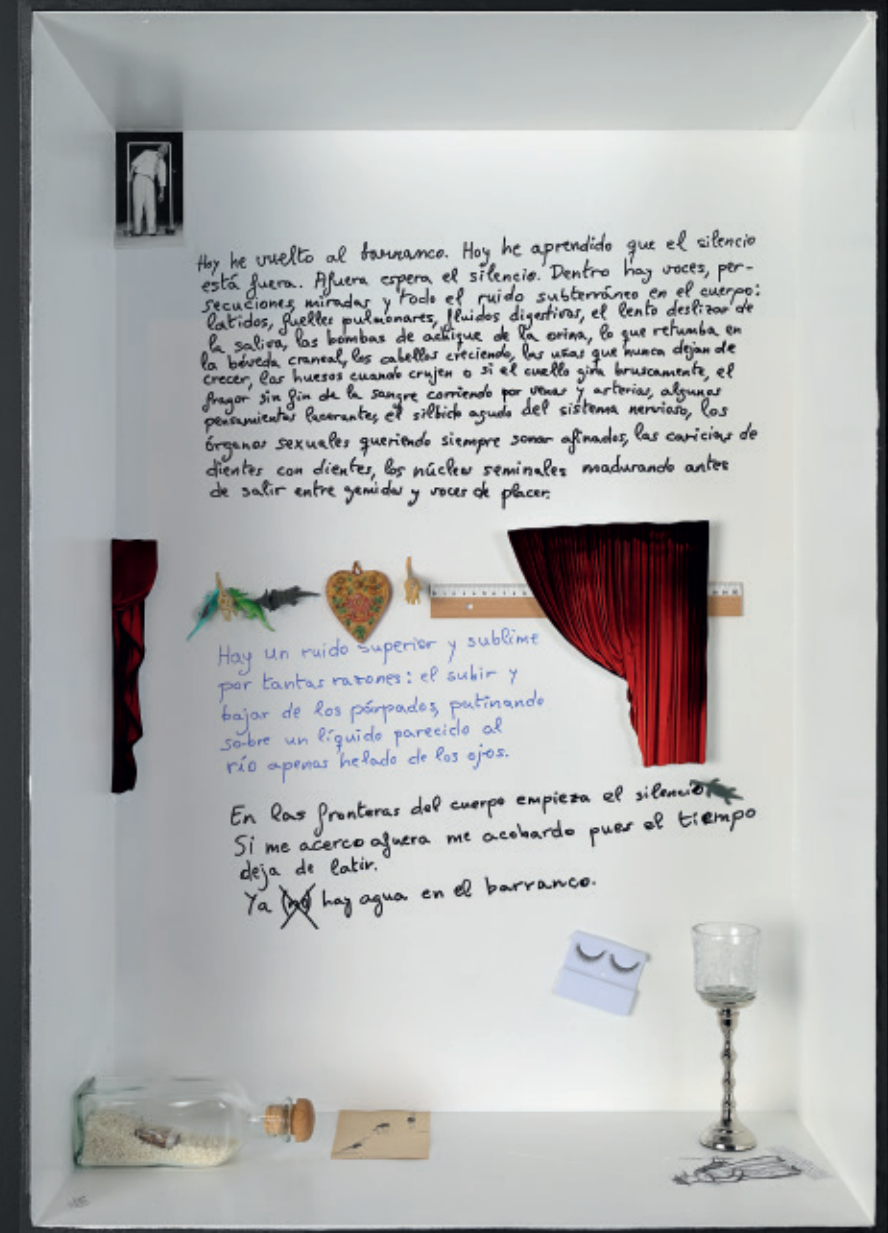 Hoy he vuelto al barranco. Hoy he aprendido que el silencio
está fuera. Afuera espera el silencio. Dentro hay voces, per-
secuciones, miradas y todo el ruido subterráneo en el cuerpo:
latidos, fuelles pulmonares, fluidos digestivos, el lento deslizar de
la saliva, las bombas de achique de la orina, lo que retumba en
la bóveda craneal, los cabellos creciendo, las uñas que nunca dejan de
crecer, los huesos cuando crujen o si el cuello gira bruscamente, el
fragor sin fin de la sangre corriendo por venas y arterias, algunos
pensamientos lacerantes, el silbido agudo del sistema nervioso, los
órganos sexuales queriendo siempre sonar afinados, las caricias de
dientes con dientes, los núcleos seminales madurando antes
de salir entre gemidos y voces de placer.
Hay un ruido superior y sublime
por tantas razones: el subir y
bajar de los párpados, patinando
sobre un líquido parecido al
río apenas helado de los ojos.
En las fronteras del cuerpo empieza el silencio.
Si me acerco afuera me acobardo pues el tiempo
deja de latir.
Ya no hay agua en el barranco.